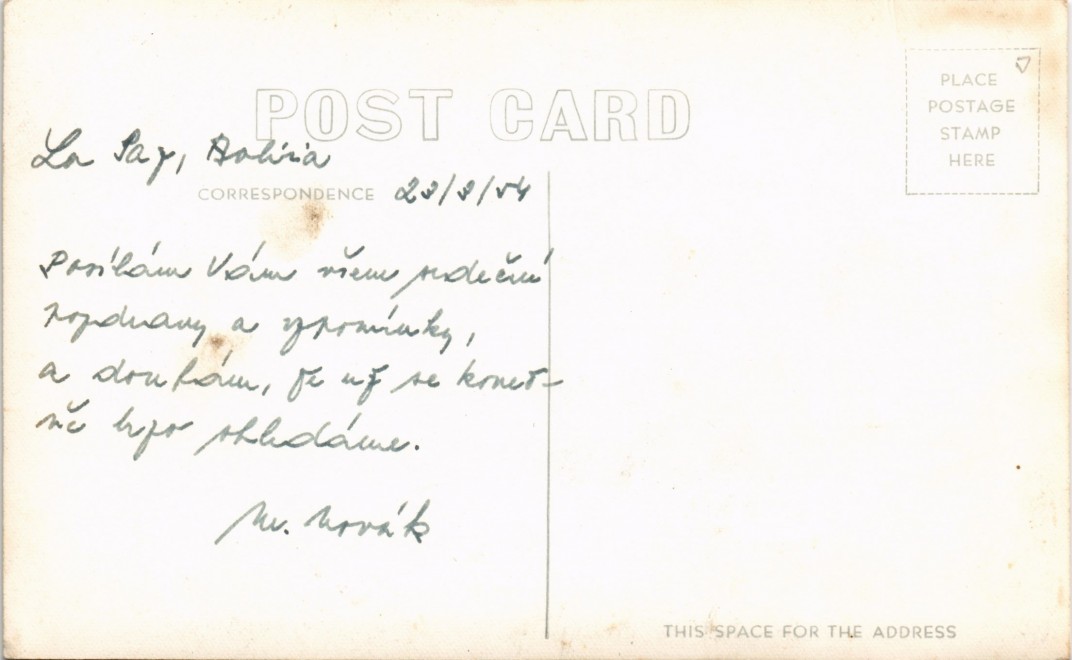 POST CARD
PLACE
POSTAGE
STAMP
HERE
La Paz, Bolivia
CORRESPONDENCE 23/3/54
Posílám Vám všem srdečné
pozdravy a vzpomínky,
a doufám, že už se koneč-
ně brzo shledáme.
M. Novák
THIS SPACE FOR THE ADDRESS